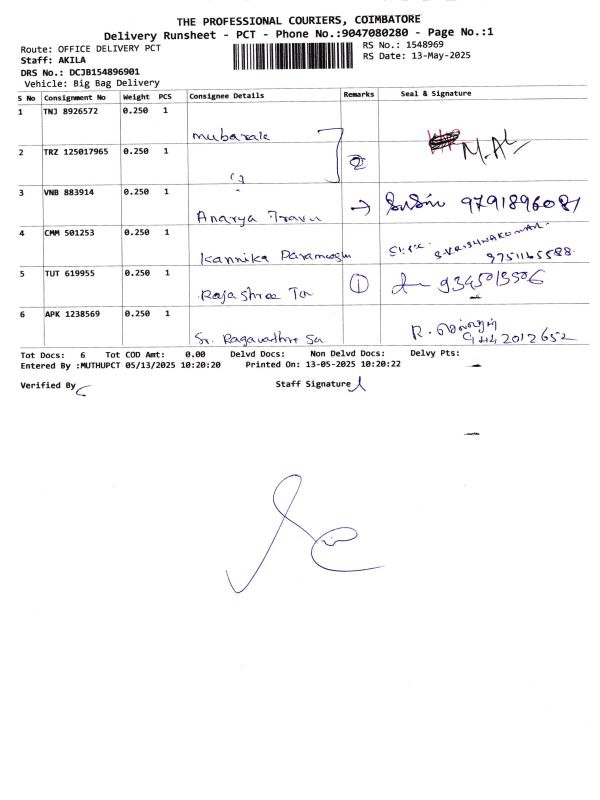 THE PROFESSIONAL COURIERS, COIMBATORE
Delivery Runsheet - PCT - Phone No.:9047080280 - Page No.:1
Route: OFFICE DELIVERY PCT
RS No.: 1548969
Staff: AKILA
RS Date: 13-May-2025
DRS No.: DCJB154896901
Vehicle: Big Bag Delivery
S No Consignment No Weight PCS Consignee Details Remarks Seal & Signature
1 TNJ 8926572 0.250 1
mubarak
2 TRZ 125017965 0.250 1 2 M.A
3 VNB 883914 0.250 1 → 9791896081
Ananya
4 CMM 501253 0.250 1
Kannika Parameshw
9751165588
5 TUT 619955 0.250 1 1 9345013506
Rajashree Tex
6 APK 1238569 0.250 1 R.
Sr. Ragavendra
Tot Docs: 6 Tot COD Amt: 0.00 Delvd Docs: Non Delvd Docs: Delvy Pts:
Entered By :MUTHUPCT 05/13/2025 10:20:20 Printed On: 13-05-2025 10:20:22
Verified By Staff Signature